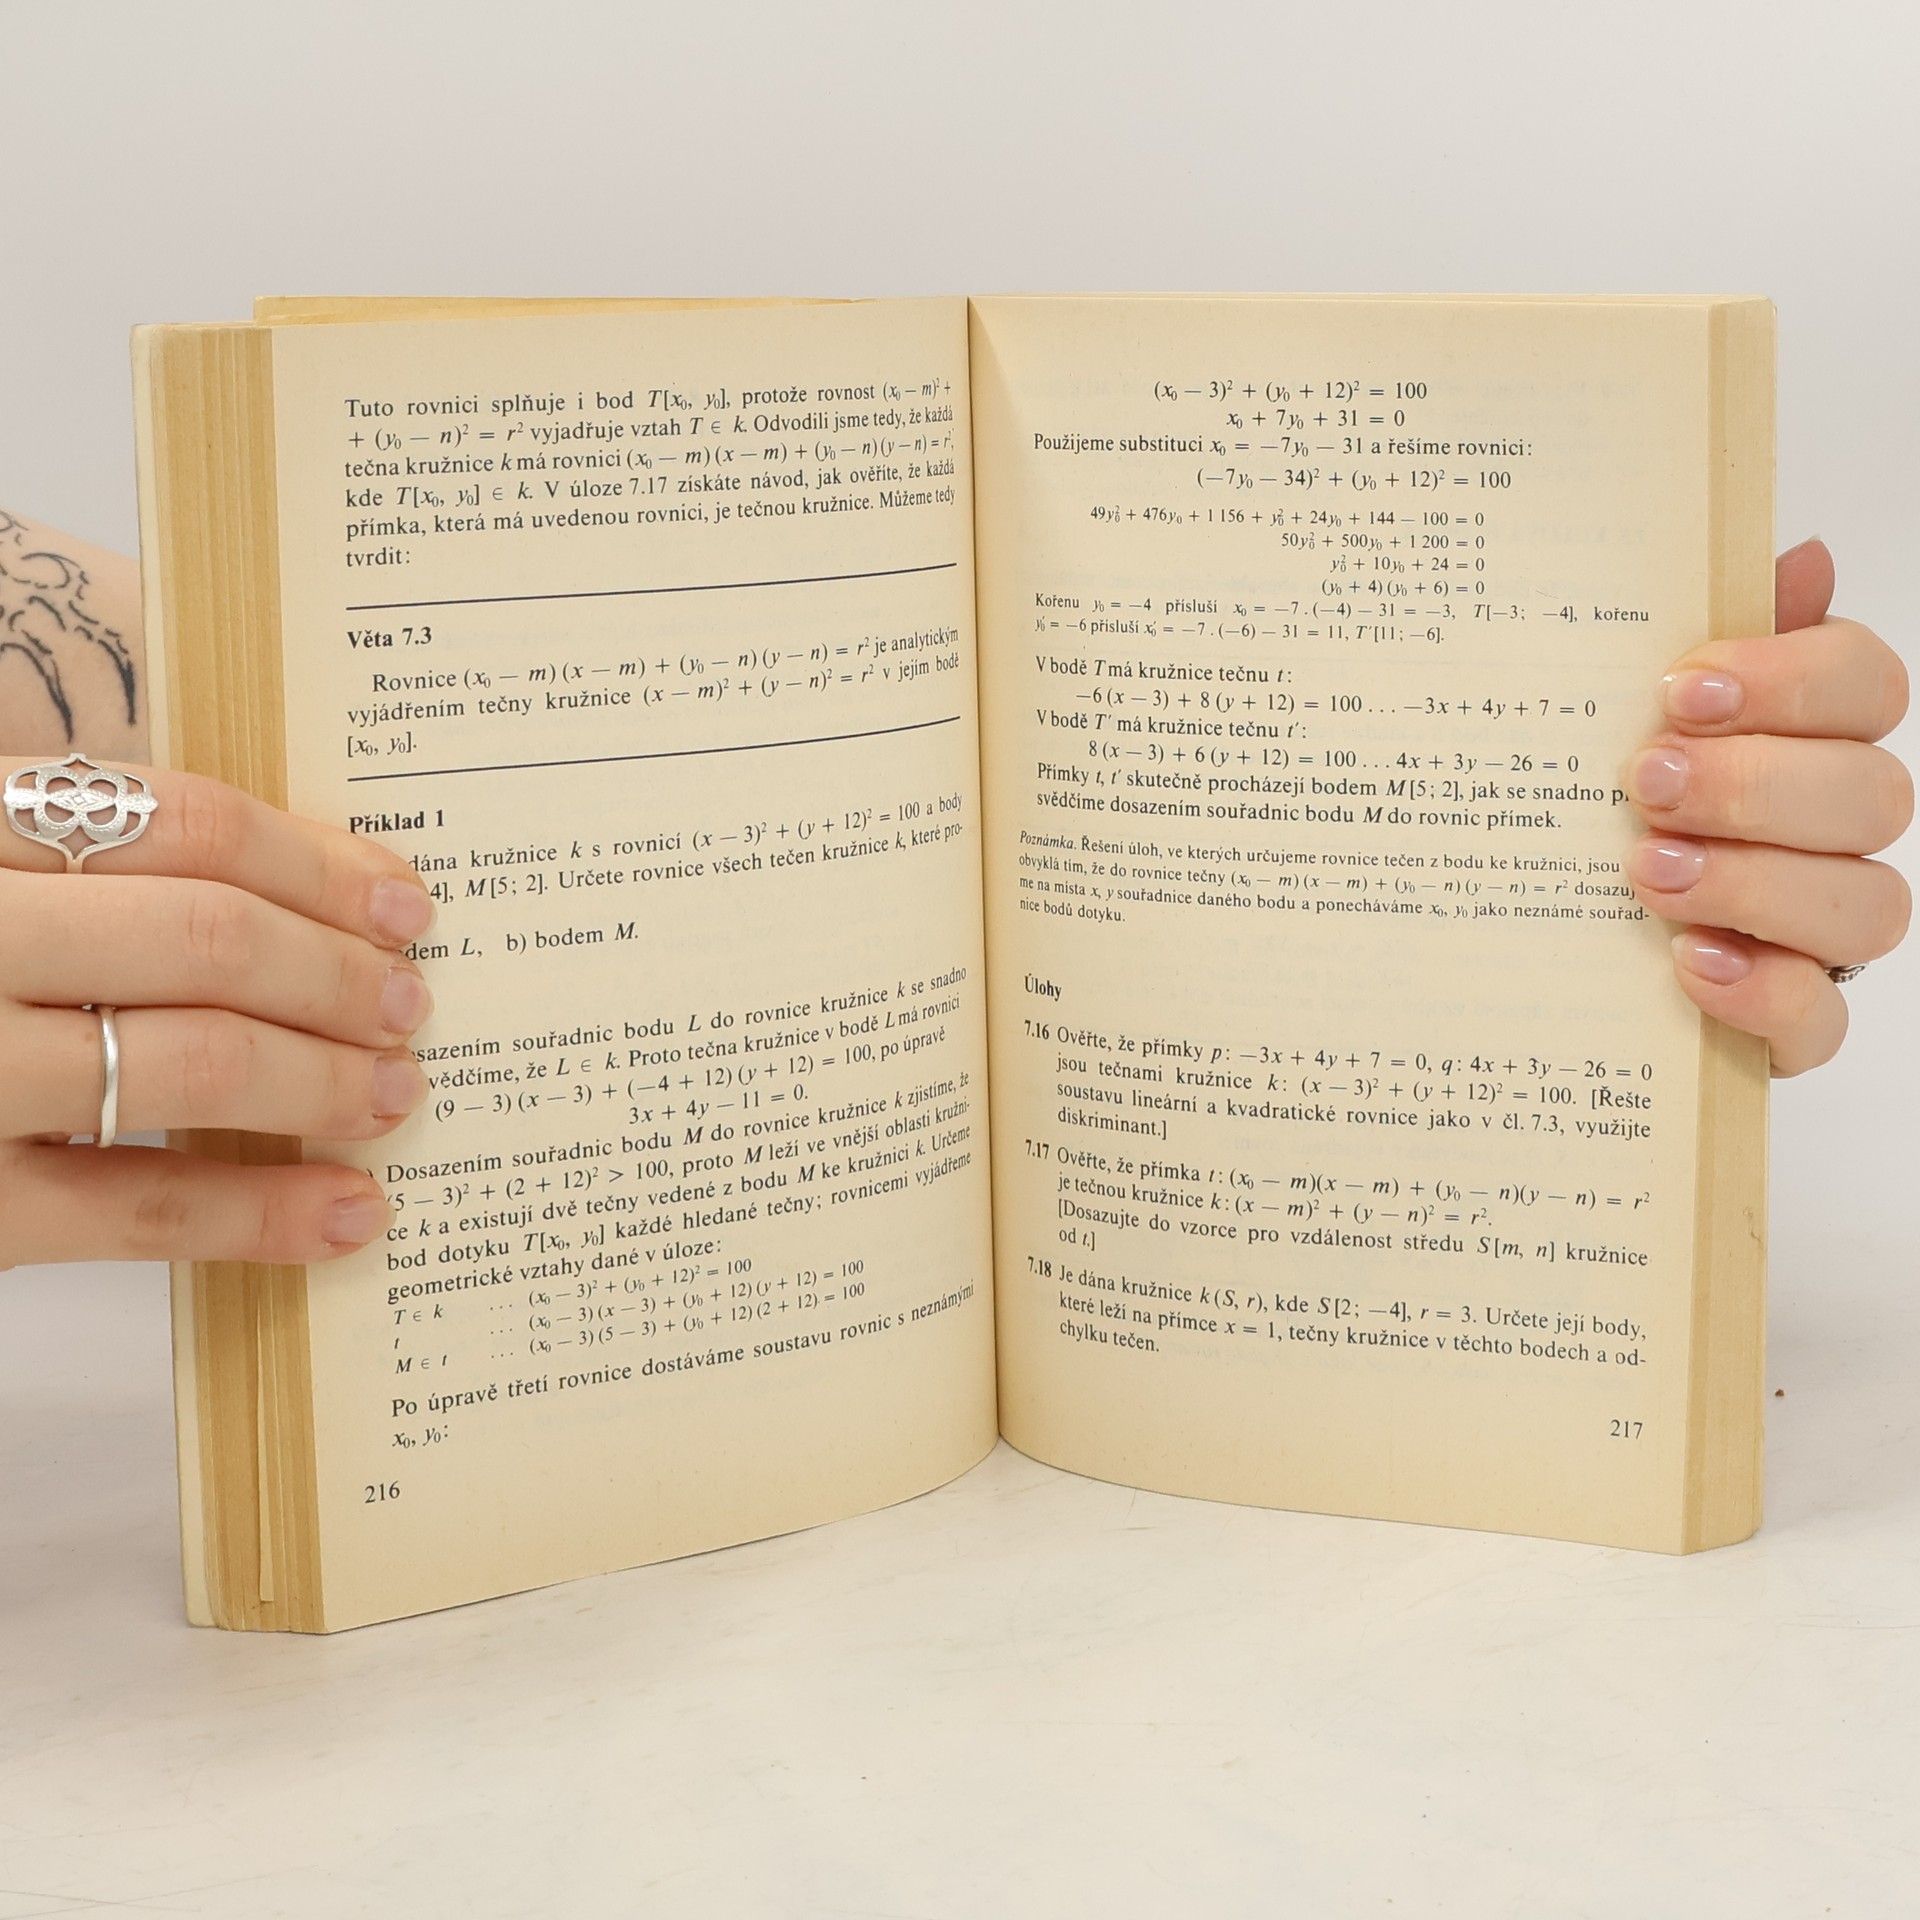 Tuto rovnici splňuje i bod T[x₀, y₀], protože rovnost (x₀ − m)² +
+ (y₀ − n)² = r² vyjadřuje vztah T ∈ k. Odvodili jsme tedy, že každá
tečna kružnice k má rovnici (x₀ − m)(x − m) + (y₀ − n)(y − n) = r²,
kde T[x₀, y₀] ∈ k. V úloze 7.17 získáte návod, jak ověříte, že každá
přímka, která má uvedenou rovnici, je tečnou kružnice. Můžeme tedy
tvrdit:
Věta 7.3
Rovnice (x₀ − m)(x − m) + (y₀ − n)(y − n) = r² je analytickým
vyjádřením tečny kružnice (x − m)² + (y − n)² = r² v jejím bodě
[x₀, y₀].
Příklad 1
dána kružnice k s rovnicí (x − 3)² + (y + 12)² = 100 a body
4], M[5; 2]. Určete rovnice všech tečen kružnice k, které pro-
L, b) bodem M.
souřadnic bodu L do rovnice kružnice k se snadno
že L ∈ k. Proto tečna kružnice v bodě L má rovnici
(9 − 3)(x − 3) + (−4 + 12)(y + 12) = 100, po úpravě
3x + 4y − 11 = 0.
Dosazením souřadnic bodu M do rovnice kružnice k zjistíme, že
(5 − 3)² + (2 + 12)² > 100, proto M leží ve vnější oblasti kružni-
ce k a existují dvě tečny vedené z bodu M ke kružnici k. Určeme
bod dotyku T[x₀, y₀] každé hledané tečny; rovnicemi vyjádřeme
geometrické vztahy dané v úloze:
T ∈ k ... (x₀ − 3)² + (y₀ + 12)² = 100
t ... (x₀ − 3)(x − 3) + (y₀ + 12)(y + 12) = 100
M ∈ t ... (x₀ − 3)(5 − 3) + (y₀ + 12)(2 + 12) = 100
Po úpravě třetí rovnice dostáváme soustavu rovnic s neznámými
x₀, y₀:
216
(x₀ − 3)² + (y₀ + 12)² = 100
x₀ + 7y₀ + 31 = 0
Použijeme substituci x₀ = −7y₀ − 31 a řešíme rovnici:
(−7y₀ − 34)² + (y₀ + 12)² = 100
49y₀² + 476y₀ + 1 156 + y₀² + 24y₀ + 144 − 100 = 0
50y₀² + 500y₀ + 1 200 = 0
y₀² + 10y₀ + 24 = 0
(y₀ + 4)(y₀ + 6) = 0
Kořenu y₀ = −4 přísluší x₀ = −7.(−4) − 31 = −3, T[−3; −4], kořenu
y₀′ = −6 přísluší x₀′ = −7.(−6) − 31 = 11, T′[11; −6].
V bodě T má kružnice tečnu t:
−6(x − 3) + 8(y + 12) = 100 ... −3x + 4y + 7 = 0
V bodě T′ má kružnice tečnu t′:
8(x − 3) + 6(y + 12) = 100 ... 4x + 3y − 26 = 0
Přímky t, t′ skutečně procházejí bodem M[5; 2], jak se snadno
svědčíme dosazením souřadnic bodu M do rovnic přímek.
Poznámka. Řešení úloh, ve kterých určujeme rovnice tečen z bodu ke kružnici, jsou
obvyklá tím, že do rovnice tečny (x₀ − m)(x − m) + (y₀ − n)(y − n) = r² dosazuj
me na místa x, y souřadnice daného bodu a ponecháváme x₀, y₀ jako neznámé souřad-
nice bodů dotyku.
Úlohy
7.16 Ověřte, že přímky p: −3x + 4y + 7 = 0, q: 4x + 3y − 26 = 0
jsou tečnami kružnice k: (x − 3)² + (y + 12)² = 100. [Řešte
soustavu lineární a kvadratické rovnice jako v čl. 7.3, využijte
diskriminant.]
7.17 Ověřte, že přímka t: (x₀ − m)(x − m) + (y₀ − n)(y − n) = r²
je tečnou kružnice k: (x − m)² + (y − n)² = r².
[Dosazujte do vzorce pro vzdálenost středu S[m, n] kružnice
od t.]
7.18 Je dána kružnice k(S, r), kde S[2; −4], r = 3. Určete její body,
které leží na přímce x = 1, tečny kružnice v těchto bodech a od-
chylku tečen.
217